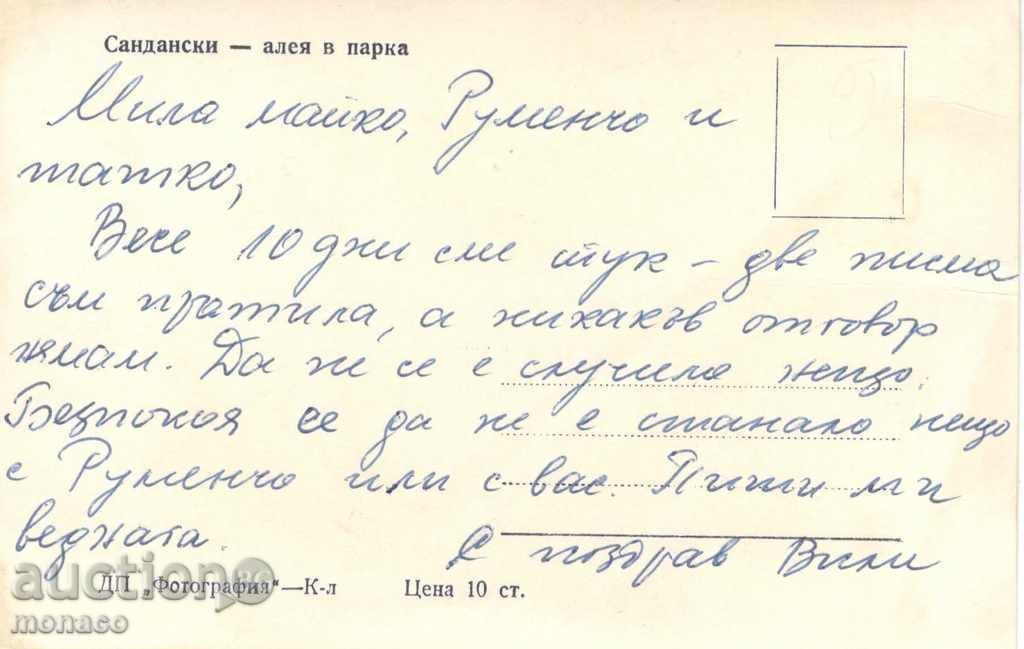 Сандански — алея в парка
Мила майко, Руменчо и
татко,
Вече 10 дни сме тук – две писма
съм пратила, а никакъв отговор
нямам. Да не се е случило нещо.
Безпокоя се да не е станало нещо
с Руменчо или с вас. Пиши ми
веднага.
С поздрав Вили
ДП „Фотография"—К-л Цена 10 ст.
auction.bg
monaco